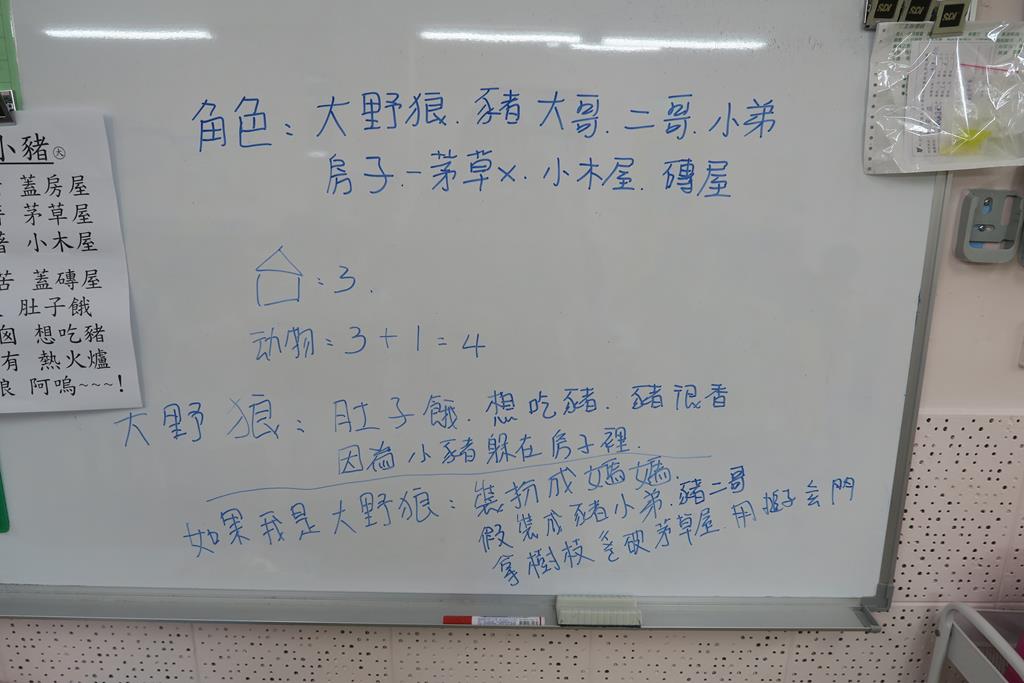 小豬
蓋房屋
茅草屋
小木屋
苦 蓋磚屋
肚子餓
囪 想吃豬
有 熱火爐
狼 阿嗚~~~!
角色：大野狼. 豬大哥. 二哥. 小弟
房子.一茅草×. 小木屋. 磚屋
：3.
动物：3+1=4
大野狼：肚子餓. 想吃豬. 豬很香
因為小豬躲在房子裡.
如果我是大野狼：裝扮成媽媽
假裝成豬小弟. 豬二哥
拿樹枝 破茅草屋. 用 子 門